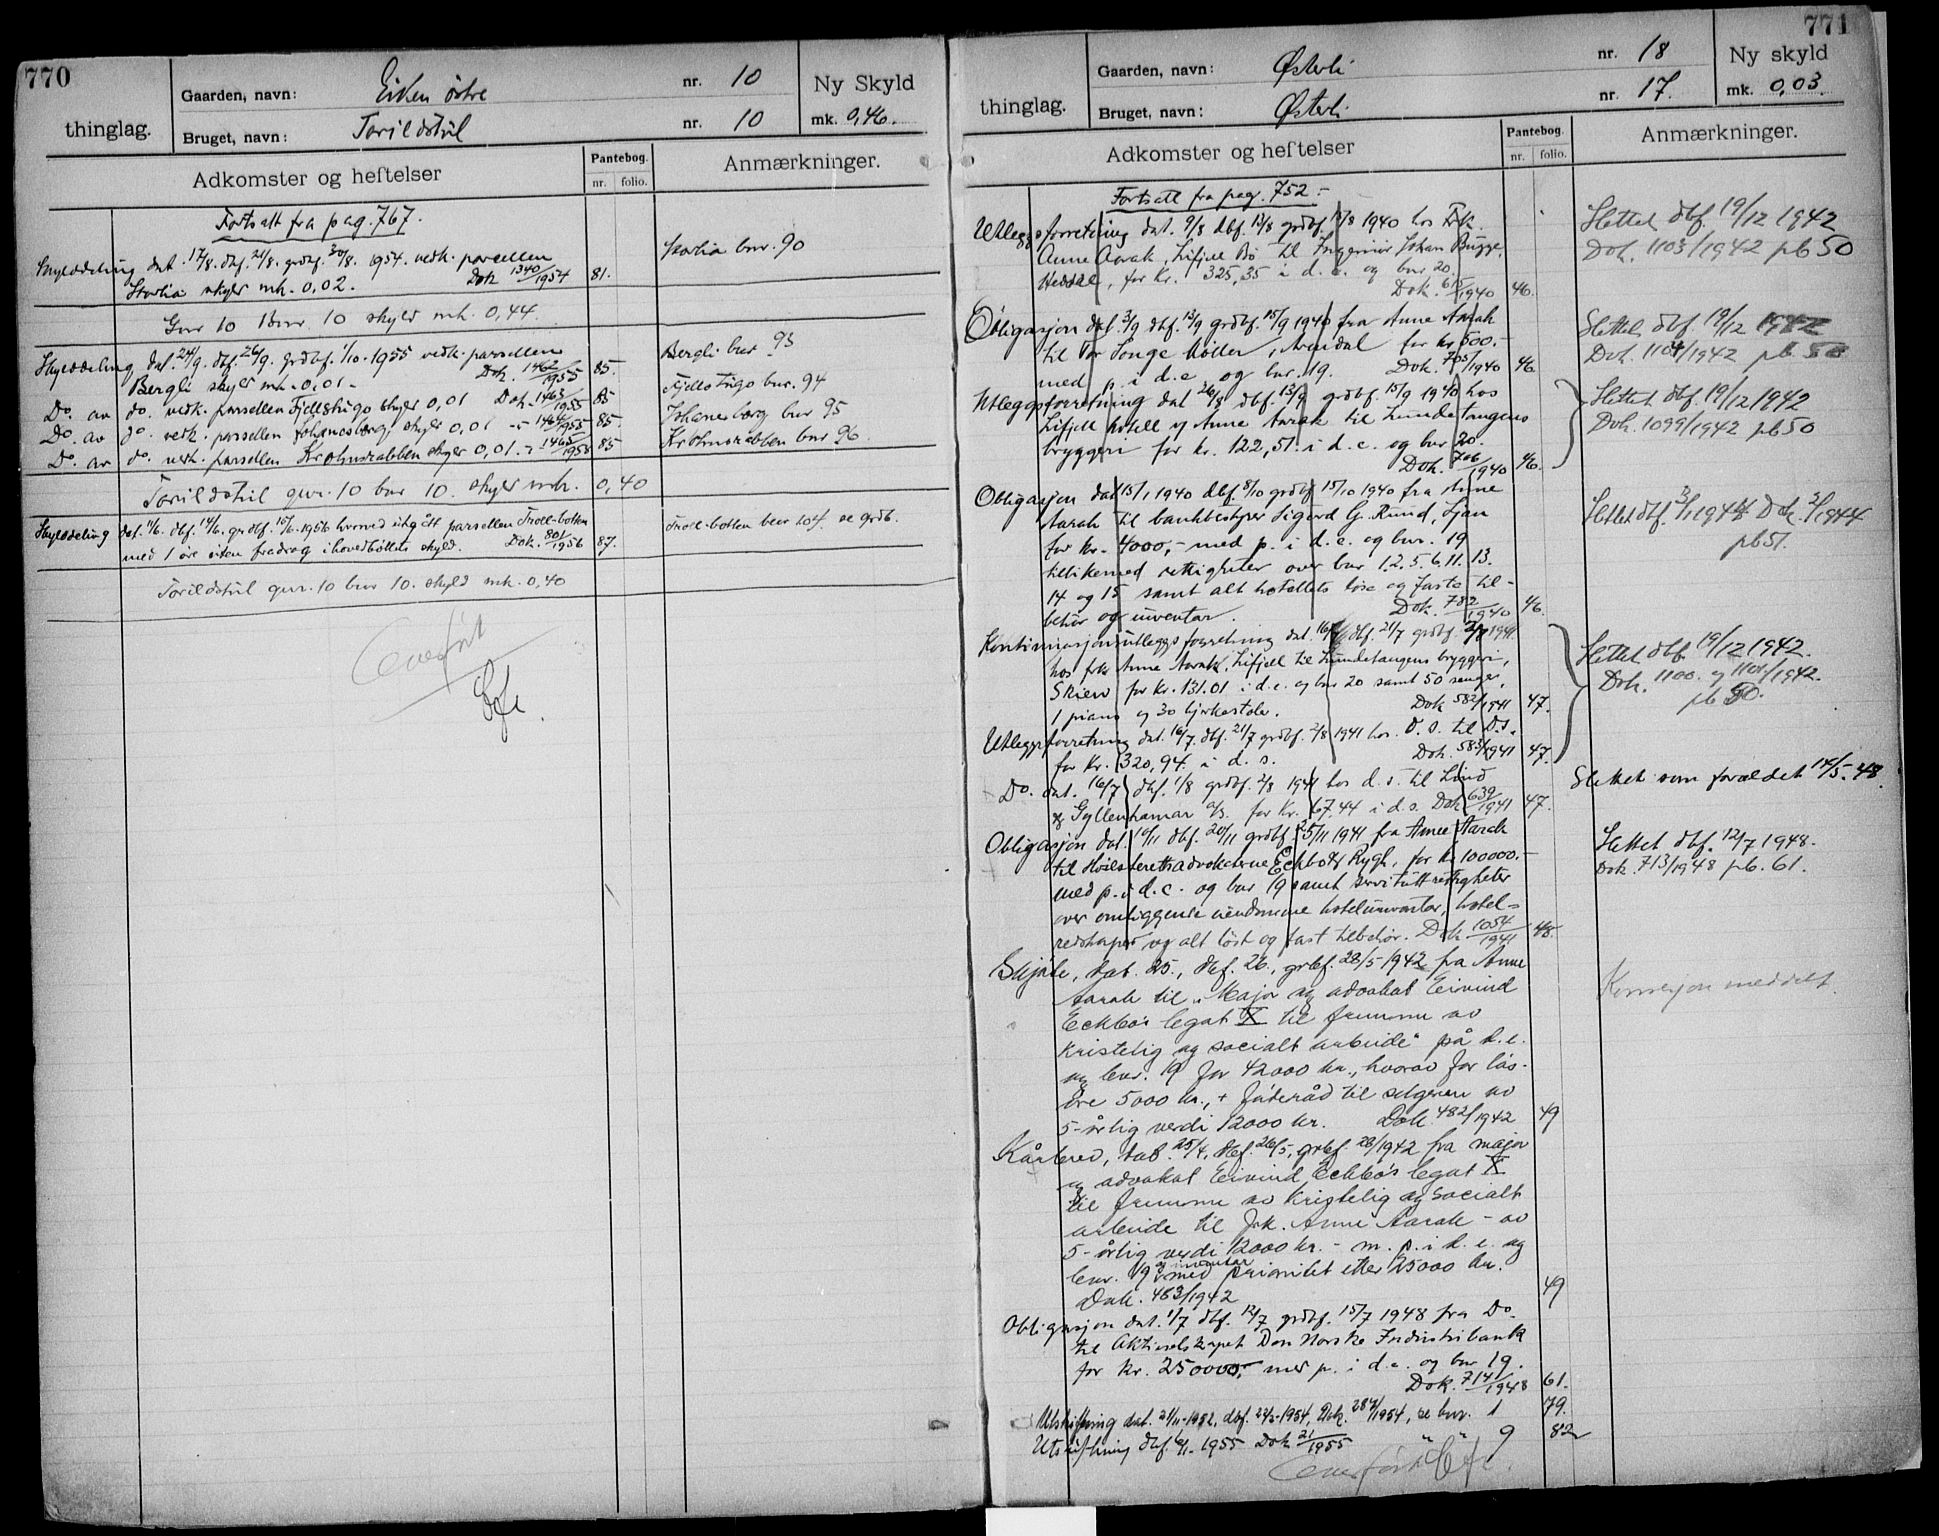 770
thinglag.
Gaarden, navn: Eiken østre nr. 10
Bruget, navn: Torildstul nr. 10
Ny Skyld
mk. 0,46.
Adkomster og heftelser
Pantebog.
nr. folio.
Anmærkninger.
Fortsatt fra pag. 767.
Skylddeling dat. 17/8. dbf. 21/8. grdbf. 30/8. 1954. vedk. parsellen
Storlia skyld mk. 0,02. Dok 1340/1954 81.
Storlia bnr. 90
Gnr 10 Bnr. 10 skyld mk. 0,44.
Skylddeling dat. 24/9. dbf. 26/9. grdbf. 1/10. 1955 vedk. parsellen
Bergli skyld mk. 0,01. Dok. 1462/1955 85.
Bergli bnr 93
Do. av do. vedk. parsellen Fjellstugo skyld 0,01 Dok. 1463/1955 85
Fjellstugo bnr. 94
Do. av do. vedk. parsellen Johanesberg skyld 0,01 -"- 1464/1955 85.
Johanesberg bnr 95
Do. av do. vedk. parsellen Krohnsrabben skyld 0,01. -"- 1465/1955 85
Krohnsrabben bnr 96.
Torildstul gnr. 10 bnr 10. skyld mk. 0,40
Skylddeling dat. 11/6. dbf. 14/6. grdbf. 15/6. 1956 hvorved utgått parsellen Troll-botten
med 1 øre uten fradrag i hovedbølets skyld. Dok. 801/1956 87.
Troll-botten bnr 104. se grdb.
Torildstul gnr. 10 bnr 10. skyld mk. 0,40
Overført
771
thinglag.
Gaarden, navn: Østerli nr. 18
Bruget, navn: Østerli nr. 17.
Ny skyld
mk. 0,03.
Adkomster og heftelser
Pantebog.
nr. folio.
Anmærkninger.
Fortsatt fra pag. 752.-
Utleggsforretning dat. 9/8 dbf. 13/8 grdbf. 15/8 1940 hos Frk.
Anne Aarak, Lifjell Bø til Ingeniør Johan Bugge,
Heddal, for kr. 325,35 i d. e. og bnr 20.
Dok. /1940 46.
Slettet dbf. 19/12 1942
Dok. 1103/1942 pb 50
Obligasjon dat. 3/9 dbf. 13/9 grdbf. 15/9 1940 fra Anne Aarak
til Tor Songe Møller, Arendal for kr 500.-
med p. i d. e og bnr. 19. Dok. 705/1940 46.
Slettet dbf. 19/12 1942
Dok. 1104/1942 pb. 50
Utleggsforretning dat 26/8 dbf. 13/9 grdbf. 15/9 1940 hos
Lifjell hotell v/ Anne Aarak til Lundetangens
bryggeri for kr. 122,51. i d. e. og bnr 20.
Dok. 706/1940 46.
Slettet dbf. 19/12 1942
Dok. 1099/1942 pb 50
Obligasjon dat 15/1 1940 dbf. 8/10 grdbf 15/10 1940 fra Anne
Aarak til bankbestyrer Sigurd G. Rund, Ljan
for kr. 4000,- med p. i d. e og bnr. 19
tillikemed rettigheter over bnr 1.2.5.6.11.13.
14 og 15 samt alt hotellets løse og faste til-
behør og inventar. Dok. 782/1940 46.
Slettet dbf. 3/1 1944 Dok. 3/1944
pb 51.
Kontinuasjonsutleggsforretning dat. 16/7 dbf. 21/7 grdbf. 2/8 1941.
hos frk Anne Aarak, Lifjell til Lundetangens bryggeri,
Skien for kr. 131.01 i d. e. og bnr 20 samt 50 senger,
1 piano og 30 bjerkestoler. Dok 582/1941 47.
Slettet dbf 19/12 1942.
Dok. 1100. og 1101/1942.
pb 50.
Utleggsforretning dat. 16/7. dbf. 21/7 grdbf. 2/8 1941 hos. D. s. til D.s.
for kr. 320,94. i d. s. Dok. 583/1941 47.
Do. dat. 16/7 dbf. 1/8 grdbf. 2/8 1941 hos d. s. til Lind
og Gyllenhamar a/s. for kr. 67.44 i d. s. Dok 639/1941 47.
Slettet som foreldet 14/5. 48.
Obligasjon dat. 10/11 dbf. 20/11 grdbf. 25/11 1941 fra Anne Aarak
til Høiesterettsadvokaterne Eckbo & Rygh, for kr 100000.-
med p. i d. e. og bnr 19 samt servituttrettigheter
over omliggende eiendomme hotelinventar, hotel-
redskaper og alt løst og fast tilbehør. Dok 1054/1941 48.
Slettet dbf. 12/7 1948.
Dok. 713/1948 pb. 61.
Skjøte, dat. 25., dbf. 26., grbf. 28/5 1942 fra Anne
Aarak til "Major og advokat Eivind
Eckbo's legat X til fremme av
kristelig og socialt arbeide" på d. e.
og bnr. 19 for 42000 kr., hvorav for løs-
øre 5000 kr., + føderåd til selgeren av
5-årlig verdi 12000 kr. Dok. 482/1942 49
Konsesjon meddelt.
Kårbrev, dat. 25/4, dbf. 26/5, grbf. 28/1942 fra major
og advokat Eivind Eckbo's legat X
til fremme av kristelig og socialt
arbeide til frk. Anne Aarak - av
5-årlig verdi 12000 kr. - m. p. i d. e. og
bnr. 19 og inventar med prioritet etter 25000 kr.
Dok. 483/1942 49
Obligasjon dat. 1/7 dbf. 12/7 grdbf. 15/7 1948 fra Do.
til Aktieselskapet Den Norske Industribank
for kr. 250000,- med p. i d. e. og bnr 19.
Dok. 714/1948 61.
Utskiftning dat. 21/11-1952, dbf. 22/2-1954, Dok. 284/1954, se bnr. 1 79.
Utskiftning dbf. 6/1. 1955 Dok 21/1955 " " 9 82
Overført